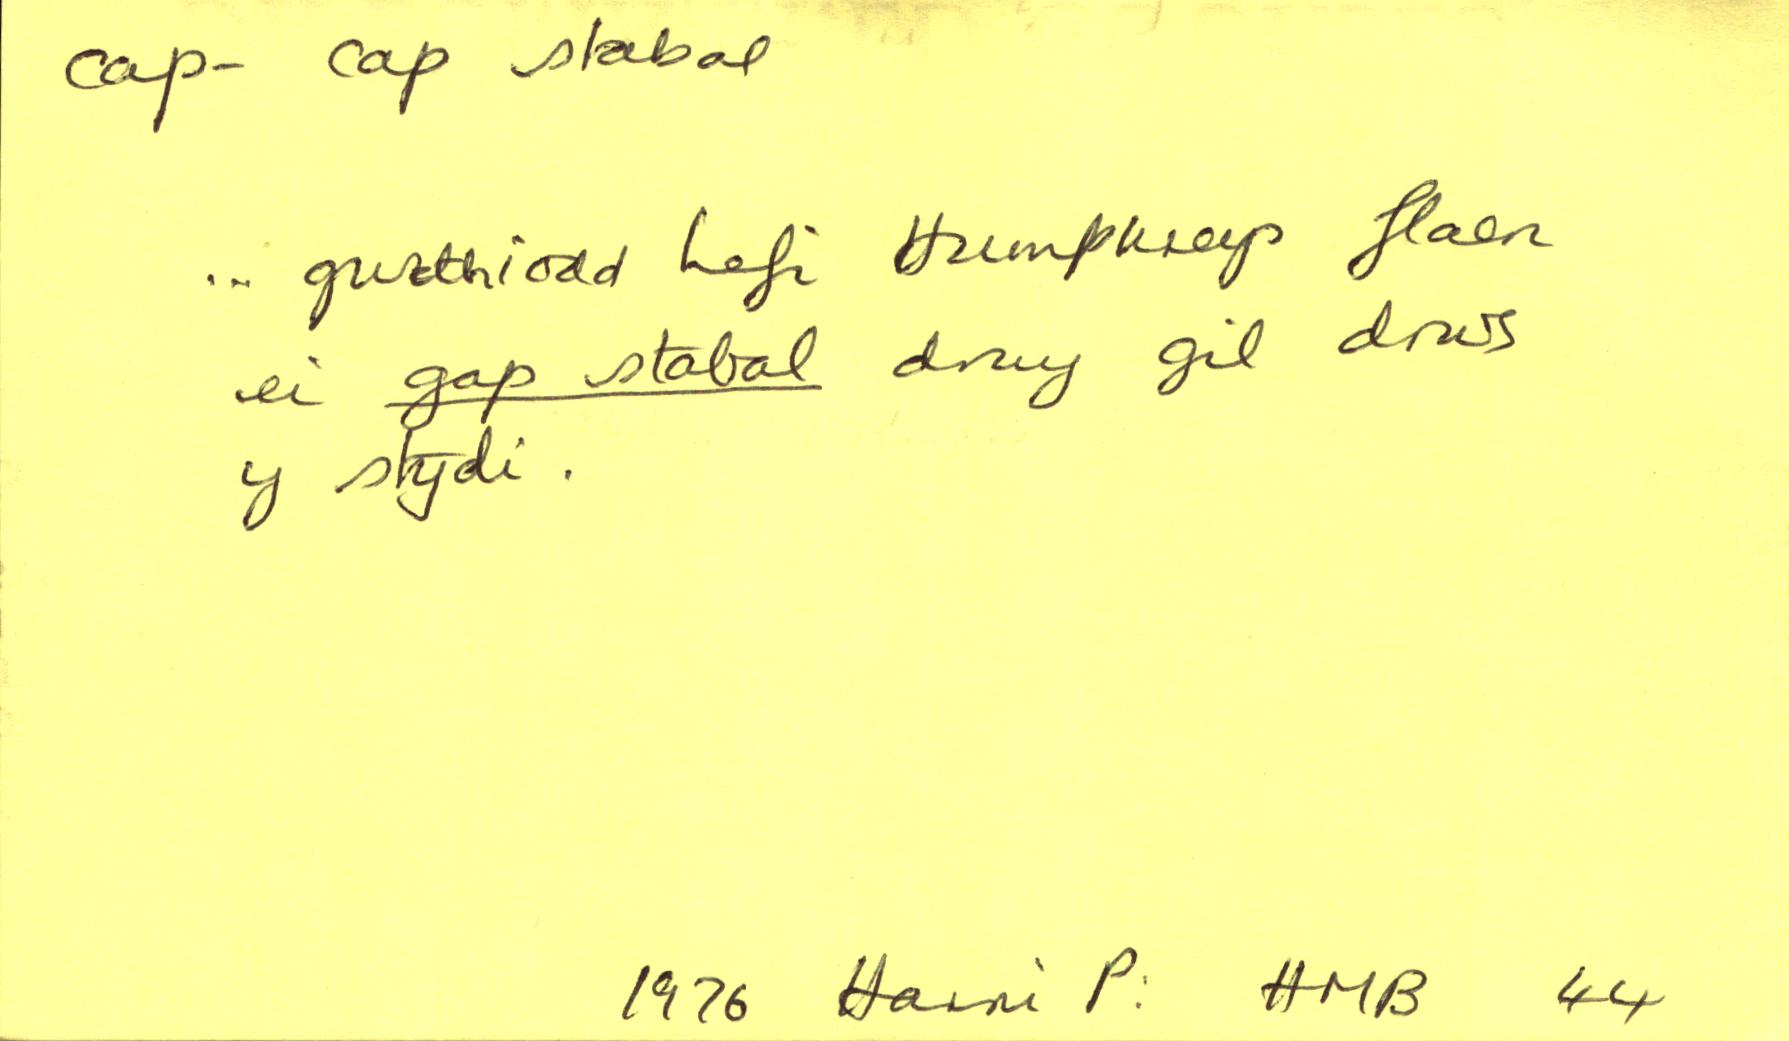 cap- cap stabal
... gwthiodd Lefi Humphreys flaen
ei gap stabal drwy gil drws
y stydi.
1976 Harri P: HMB 44